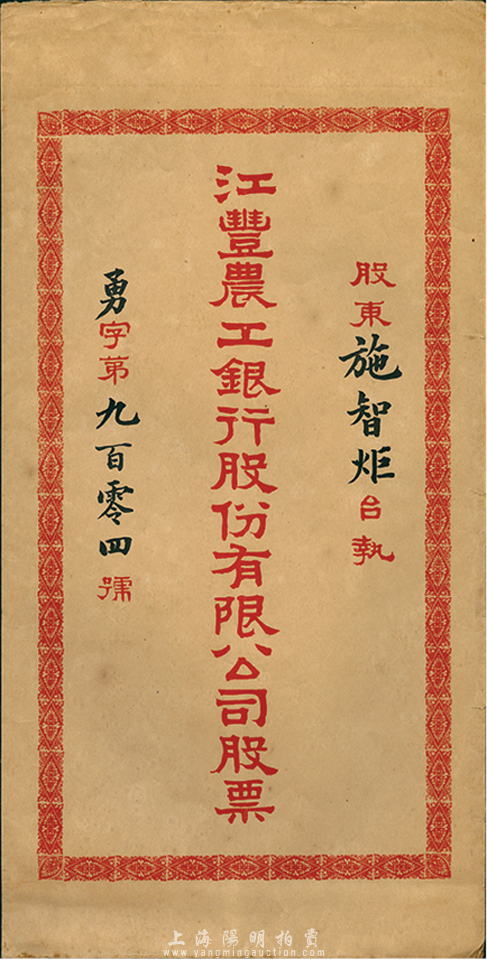 股東施智炬台執
江豐農工銀行股份有限公司股票
勇字第九百零四號
上海陽明拍賣
www.yangmingauction.com